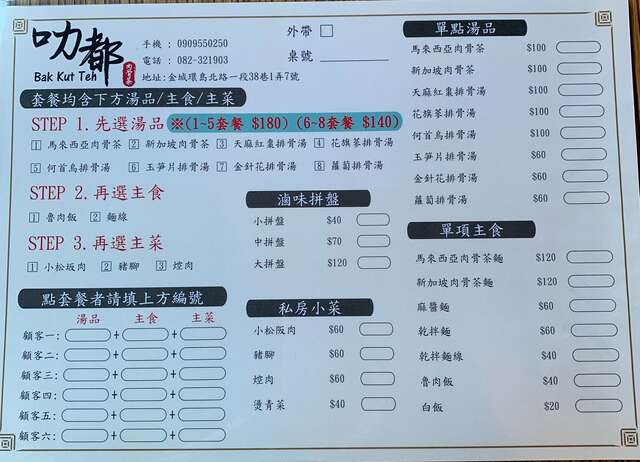 叻都
Bak Kut Teh
肉骨茶
手機 : 0909550250
電話 : 082-321903
地址:金城環島北路一段38巷1弄7號
外帶
桌號
套餐均含下方湯品/主食/主菜
STEP 1.先選湯品 ※(1~5套餐 $180) (6~8套餐 $140)
1 馬來西亞肉骨茶 2 新加坡肉骨茶 3 天麻紅棗排骨湯 4 花旗蔘排骨湯
5 何首烏排骨湯 6 玉筍片排骨湯 7 金針花排骨湯 8 蘿蔔排骨湯
STEP 2.再選主食
1 魯肉飯 2 麵線
STEP 3.再選主菜
1 小松坂肉 2 豬腳 3 焢肉
點套餐者請填上方編號
湯品 主食 主菜
顧客一: + +
顧客二: + +
顧客三: + +
顧客四: + +
顧客五: + +
顧客六: + +
滷味拼盤
小拼盤 $40
中拼盤 $70
大拼盤 $120
私房小菜
小松阪肉 $60
豬腳 $60
焢肉 $60
燙青菜 $40
單點湯品
馬來西亞肉骨茶 $100
新加坡肉骨茶 $100
天麻紅棗排骨湯 $100
花旗蔘排骨湯 $100
何首烏排骨湯 $100
玉筍片排骨湯 $60
金針花排骨湯 $60
蘿蔔排骨湯 $60
單項主食
馬來西亞肉骨茶麵 $120
新加坡肉骨茶麵 $120
麻醬麵 $60
乾拌麵 $60
乾拌麵線 $40
魯肉飯 $40
白飯 $20